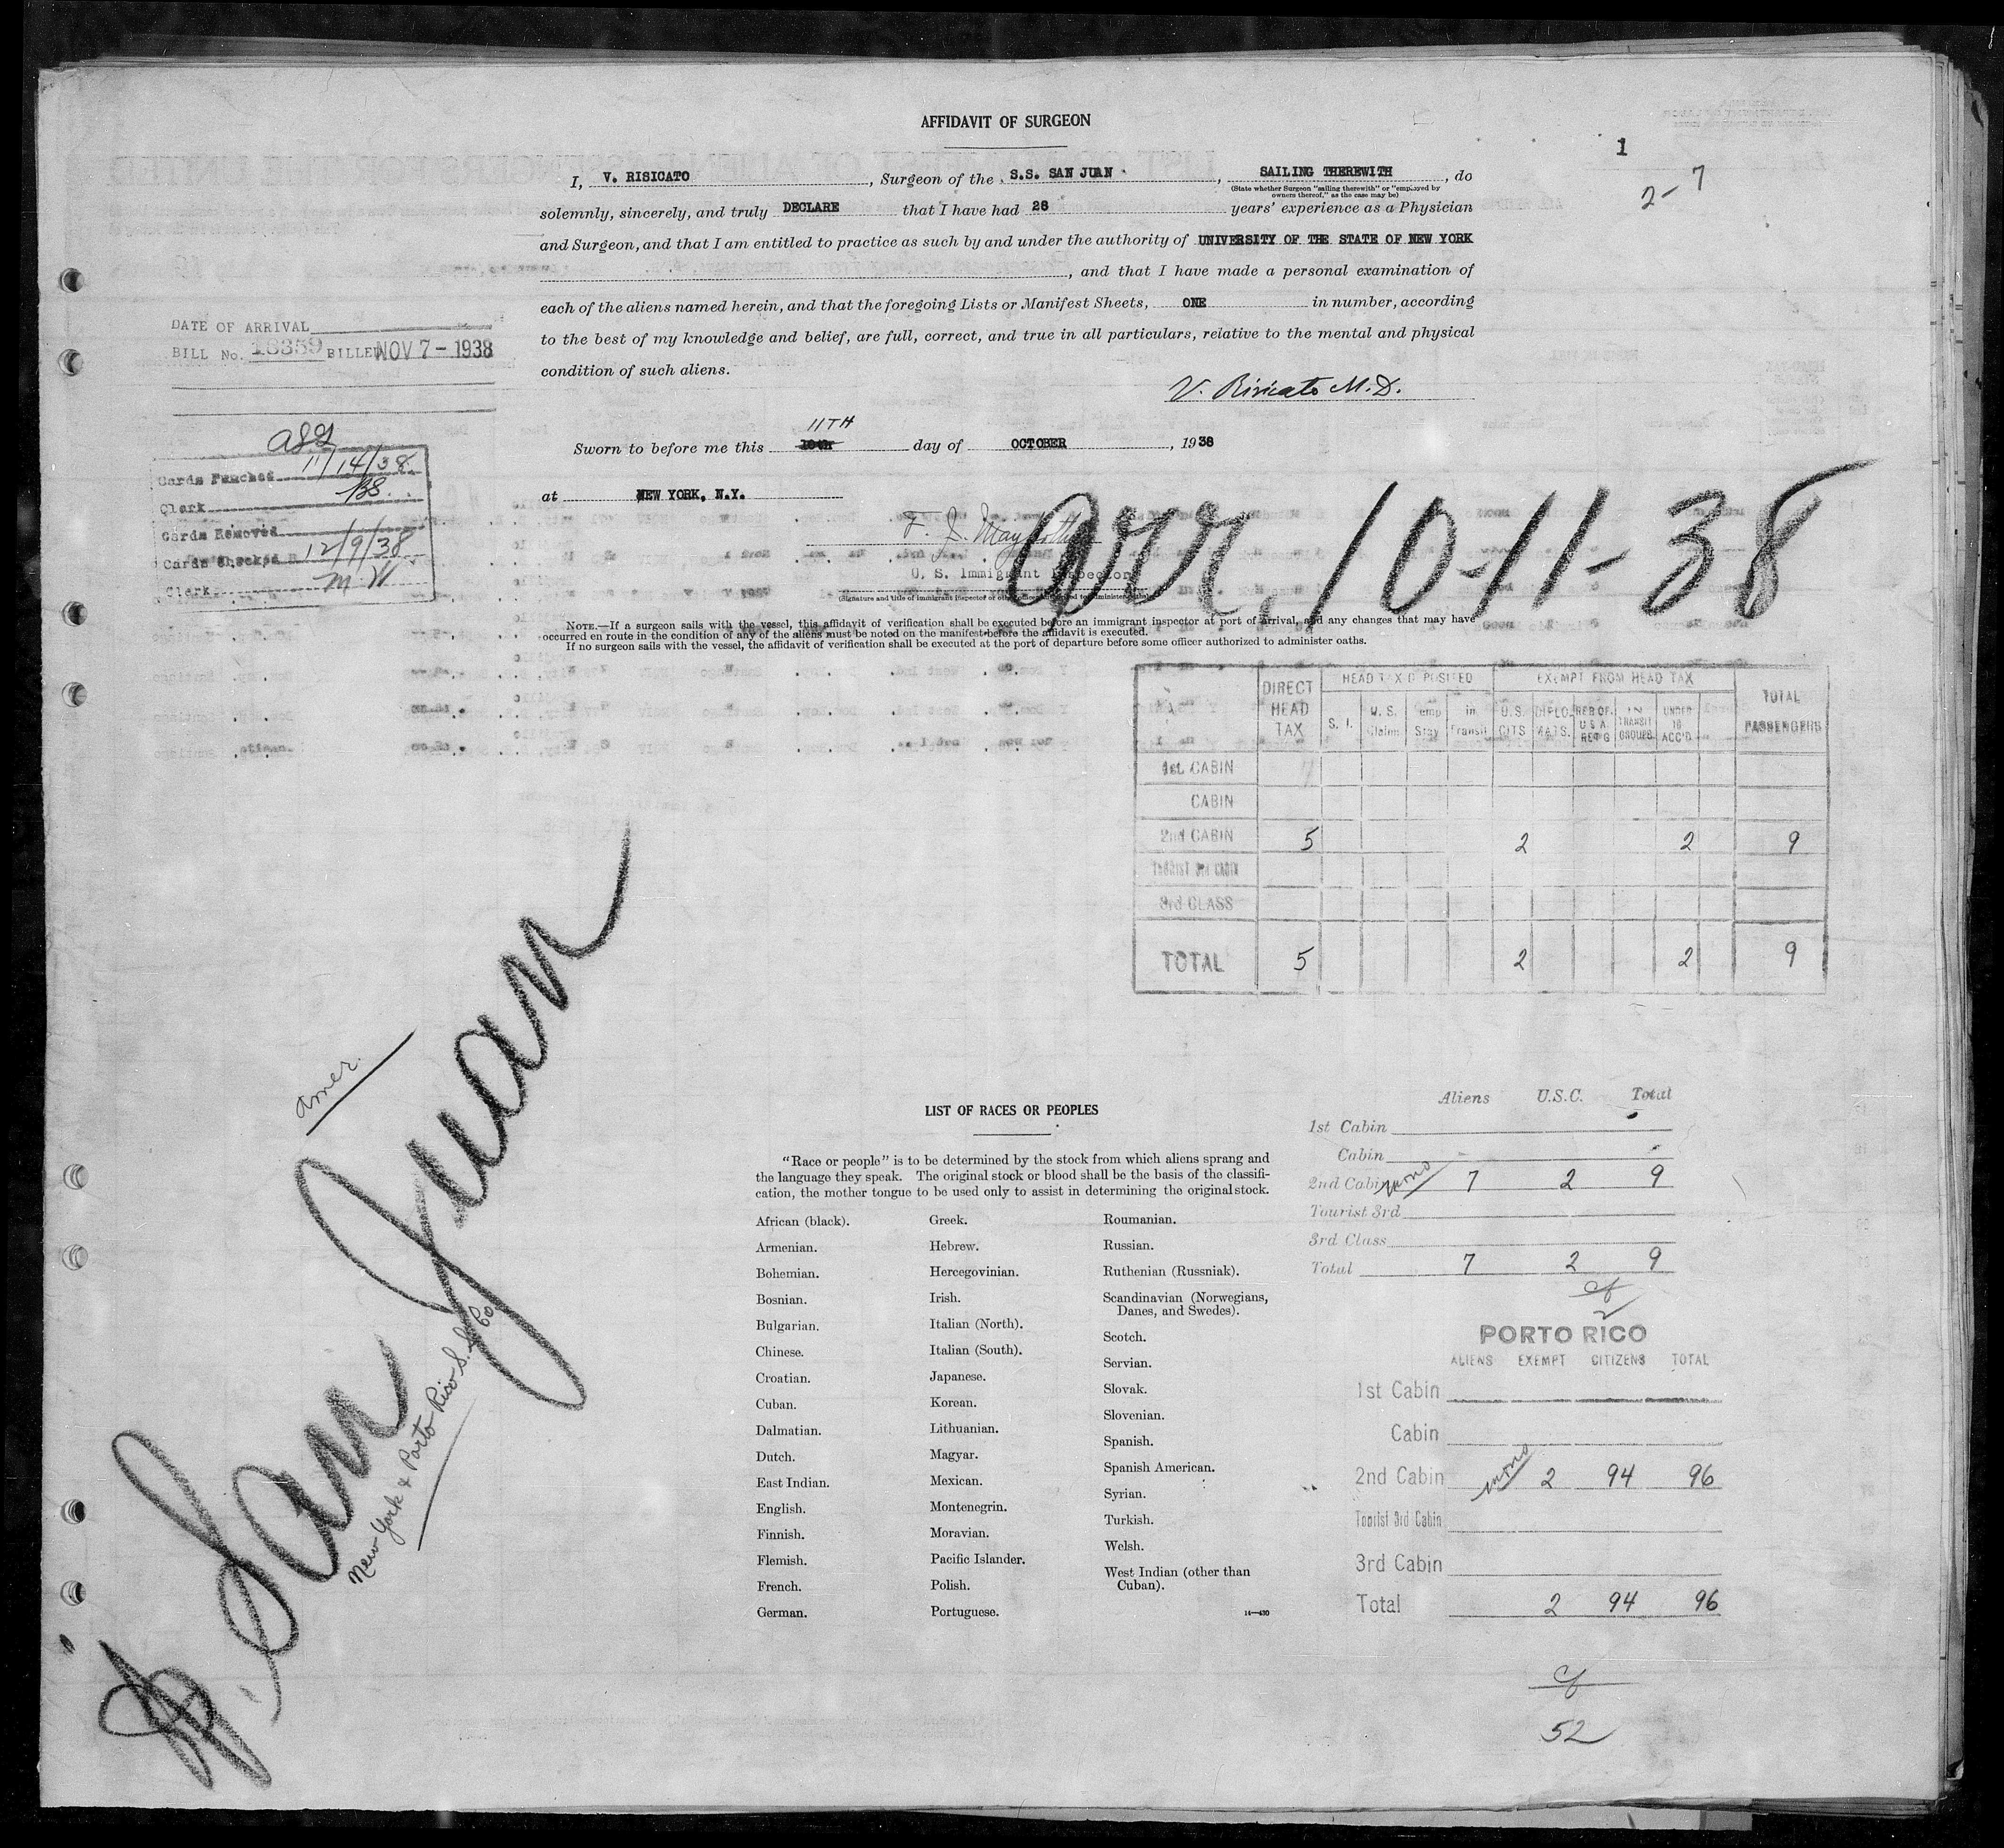 AFFIDAVIT OF SURGEON
1
2-7
I, V. RISICATO, Surgeon of the S.S. SAN JUAN, SAILING THEREWITH, do
(State whether Surgeon "sailing therewith" or "employed by
owners thereof," as the case may be)
solemnly, sincerely, and truly DECLARE that I have had 28 years' experience as a Physician
and Surgeon, and that I am entitled to practice as such by and under the authority of UNIVERSITY OF THE STATE OF NEW YORK
, and that I have made a personal examination of
each of the aliens named herein, and that the foregoing Lists or Manifest Sheets, ONE in number, according
to the best of my knowledge and belief, are full, correct, and true in all particulars, relative to the mental and physical
condition of such aliens.
V. Risicato M.D.
DATE OF ARRIVAL
BILL No. 18359 BILLED NOV 7 - 1938
11TH
Sworn to before me this 10th day of OCTOBER, 1938
at NEW YORK, N.Y.
Cards Punched 11/14/38
Clerk BS
Cards Removed
Cards Checked 12/9/38
Clerk M.W
F. J. May
U. S. Immigrant Inspector
arr. 10-11-38
NOTE.—If a surgeon sails with the vessel, this affidavit of verification shall be executed before an immigrant inspector at port of arrival, and any changes that may have
occurred en route in the condition of any of the aliens must be noted on the manifest before the affidavit is executed.
If no surgeon sails with the vessel, the affidavit of verification shall be executed at the port of departure before some officer authorized to administer oaths.
DIRECT HEAD TAX HEAD TAX DEPOSITED EXEMPT FROM HEAD TAX TOTAL PASSENGERS
S. I. U. S. Claim Temp Stay in Transit U.S. CITS DIPLO-MATS. RES OF U S A RET'G IN TRANSIT GROUPS UNDER 16 ACC'D
1st CABIN
CABIN
2nd CABIN 5 2 2 9
TOURIST 3rd CABIN
3rd CLASS
TOTAL 5 2 2 9
Amer.
S. San Juan
New York & Porto Rico S.S. Co.
LIST OF RACES OR PEOPLES
"Race or people" is to be determined by the stock from which aliens sprang and
the language they speak. The original stock or blood shall be the basis of the classifi-
cation, the mother tongue to be used only to assist in determining the original stock.
African (black).
Armenian.
Bohemian.
Bosnian.
Bulgarian.
Chinese.
Croatian.
Cuban.
Dalmatian.
Dutch.
East Indian.
English.
Finnish.
Flemish.
French.
German.
Greek.
Hebrew.
Hercegovinian.
Irish.
Italian (North).
Italian (South).
Japanese.
Korean.
Lithuanian.
Magyar.
Mexican.
Montenegrin.
Moravian.
Pacific Islander.
Polish.
Portuguese.
Roumanian.
Russian.
Ruthenian (Russniak).
Scandinavian (Norwegians,
Danes, and Swedes).
Scotch.
Servian.
Slovak.
Slovenian.
Spanish.
Spanish American.
Syrian.
Turkish.
Welsh.
West Indian (other than
Cuban).
14—430
Aliens U.S.C. Total
1st Cabin
Cabin
2nd Cabin 7 2 9
Tourist 3rd
3rd Class
Total 7 2 9
PORTO RICO
ALIENS EXEMPT CITIZENS TOTAL
1st Cabin
Cabin
2nd Cabin 2 94 96
Tourist 3rd Cabin
3rd Cabin
Total 2 94 96
52